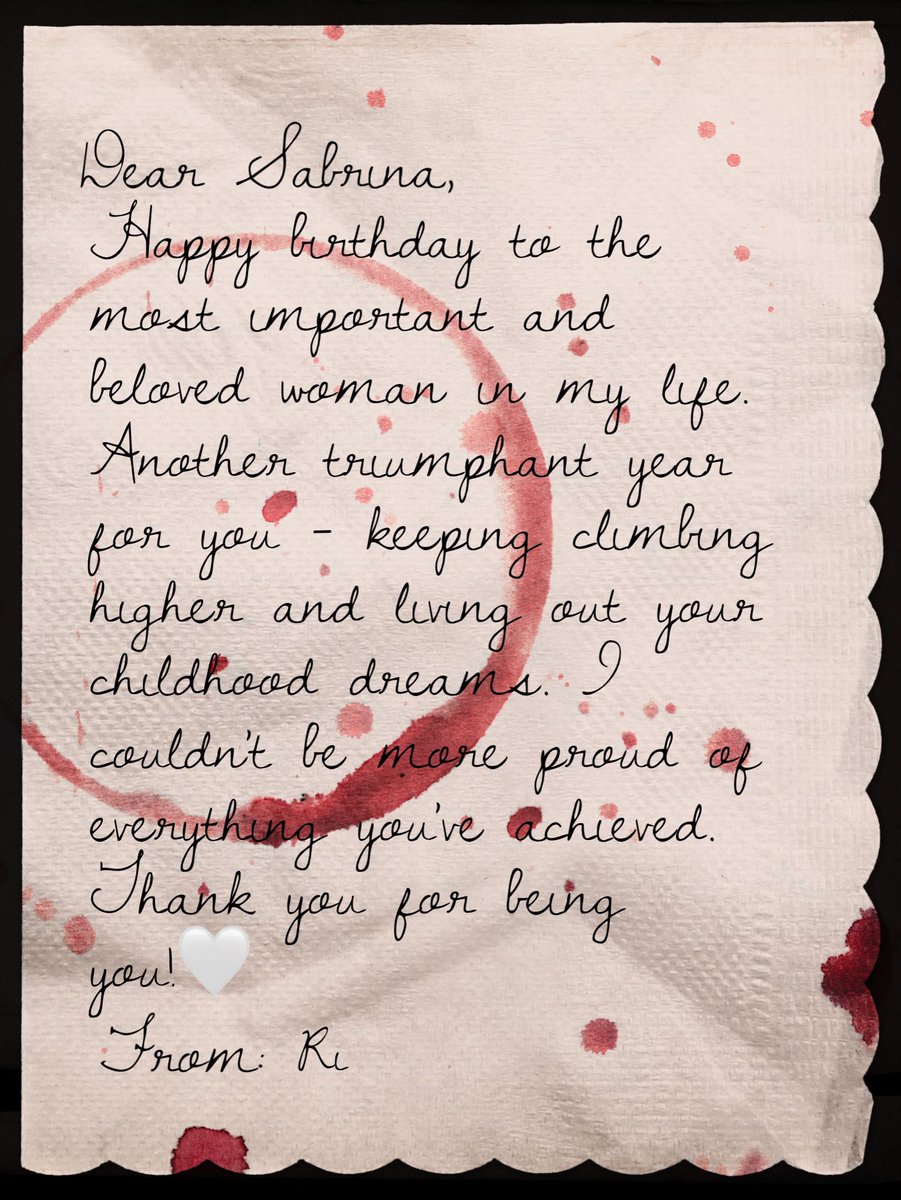 Dear Sabrina,
Happy birthday to the
most important and
beloved woman in my life.
Another triumphant year
for you - keeping climbing
higher and living out your
childhood dreams. I
couldn't be more proud of
everything you've achieved.
Thank you for being
you!🤍
From: Ri